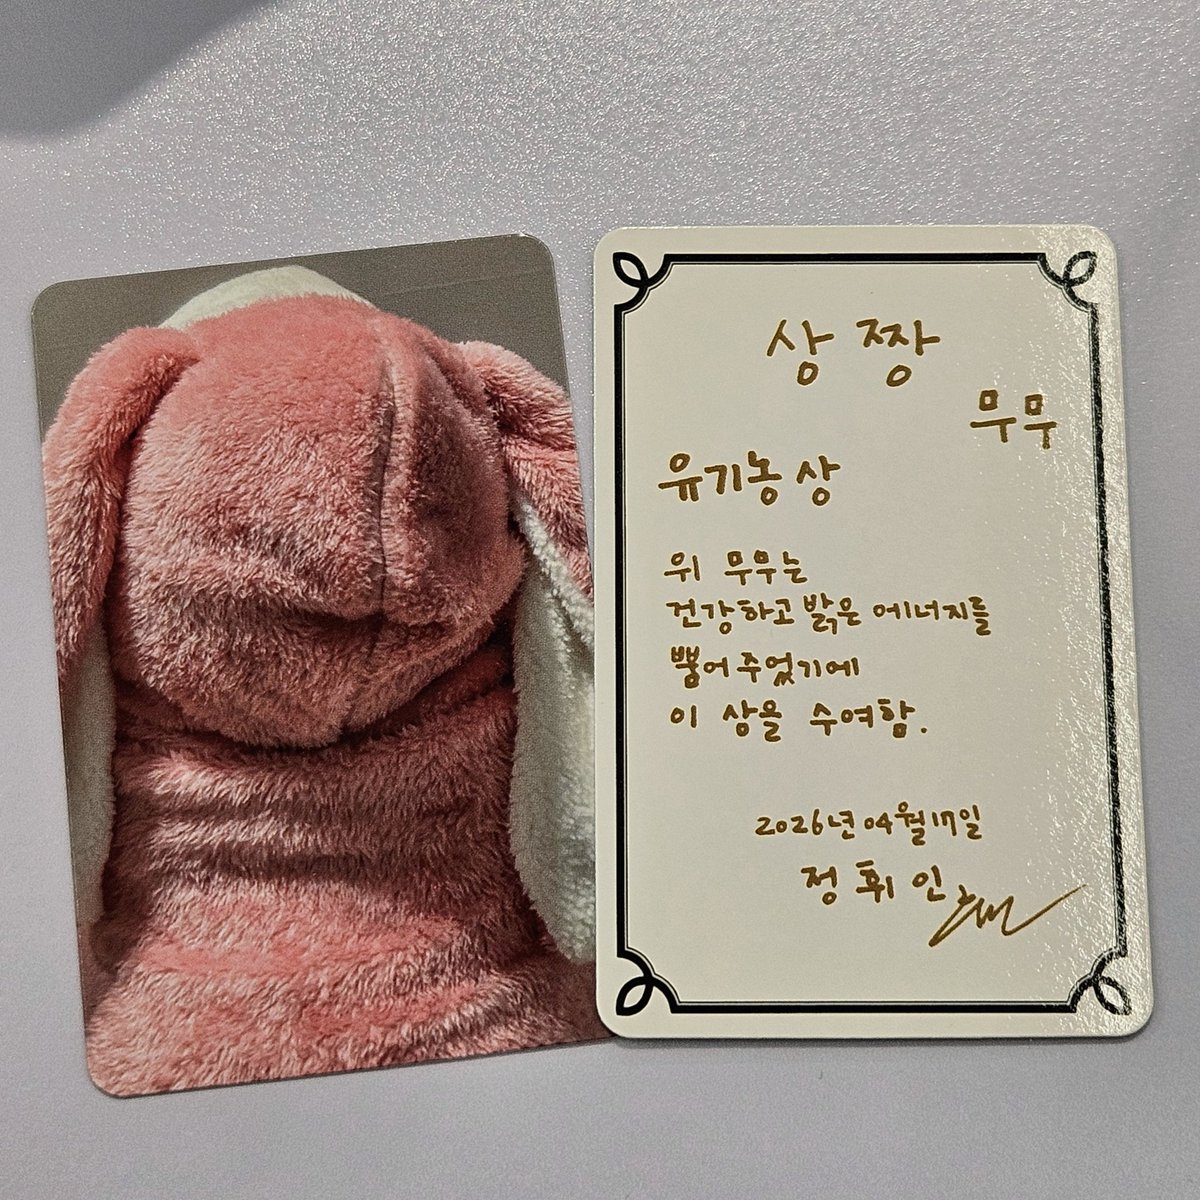 상 짱
무무
유기농 상
위 무무는
건강하고 밝은 에너지를
뿜어 주었기에
이 상을 수여함.
2026년 04월 17일
정 휘 인